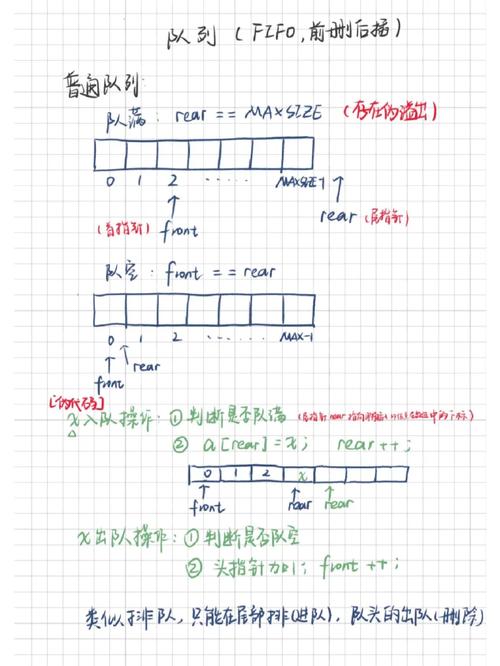 队列(FIFO,前删后插)
普通队列:
队满: rear == MAXSIZE (存在伪溢出)
0 1 2 ...... MAXSIZE-1
(首指针) front rear (尾指针)
队空: front == rear
0 1 2 ...... MAX-1
rear
front
[伪代码]
x入队操作: ① 判断是否队满 (尾指针 rear 指向 中的下标)
② a[rear]=x; rear++;
0 1 2 x
front rear rear
x出队操作: ① 判断是否队空
② 头指针加1; front++;
类似于排队,只能在尾部排(进队),队头的出队(删除)